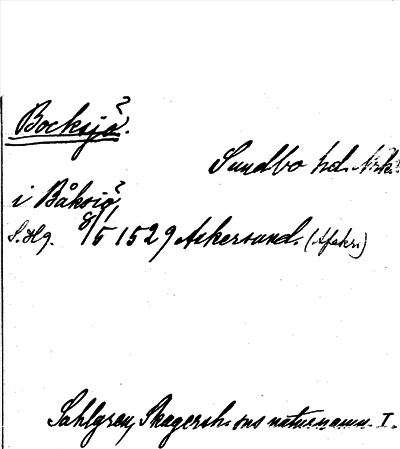 Bocksjö?.
Sundbo hd. Närke.
i Båksiö?
S.Hg. 8/5 1529 Askersund. (Afskr.)
Sahlgren, Skagersh:sns naturnamn. I.